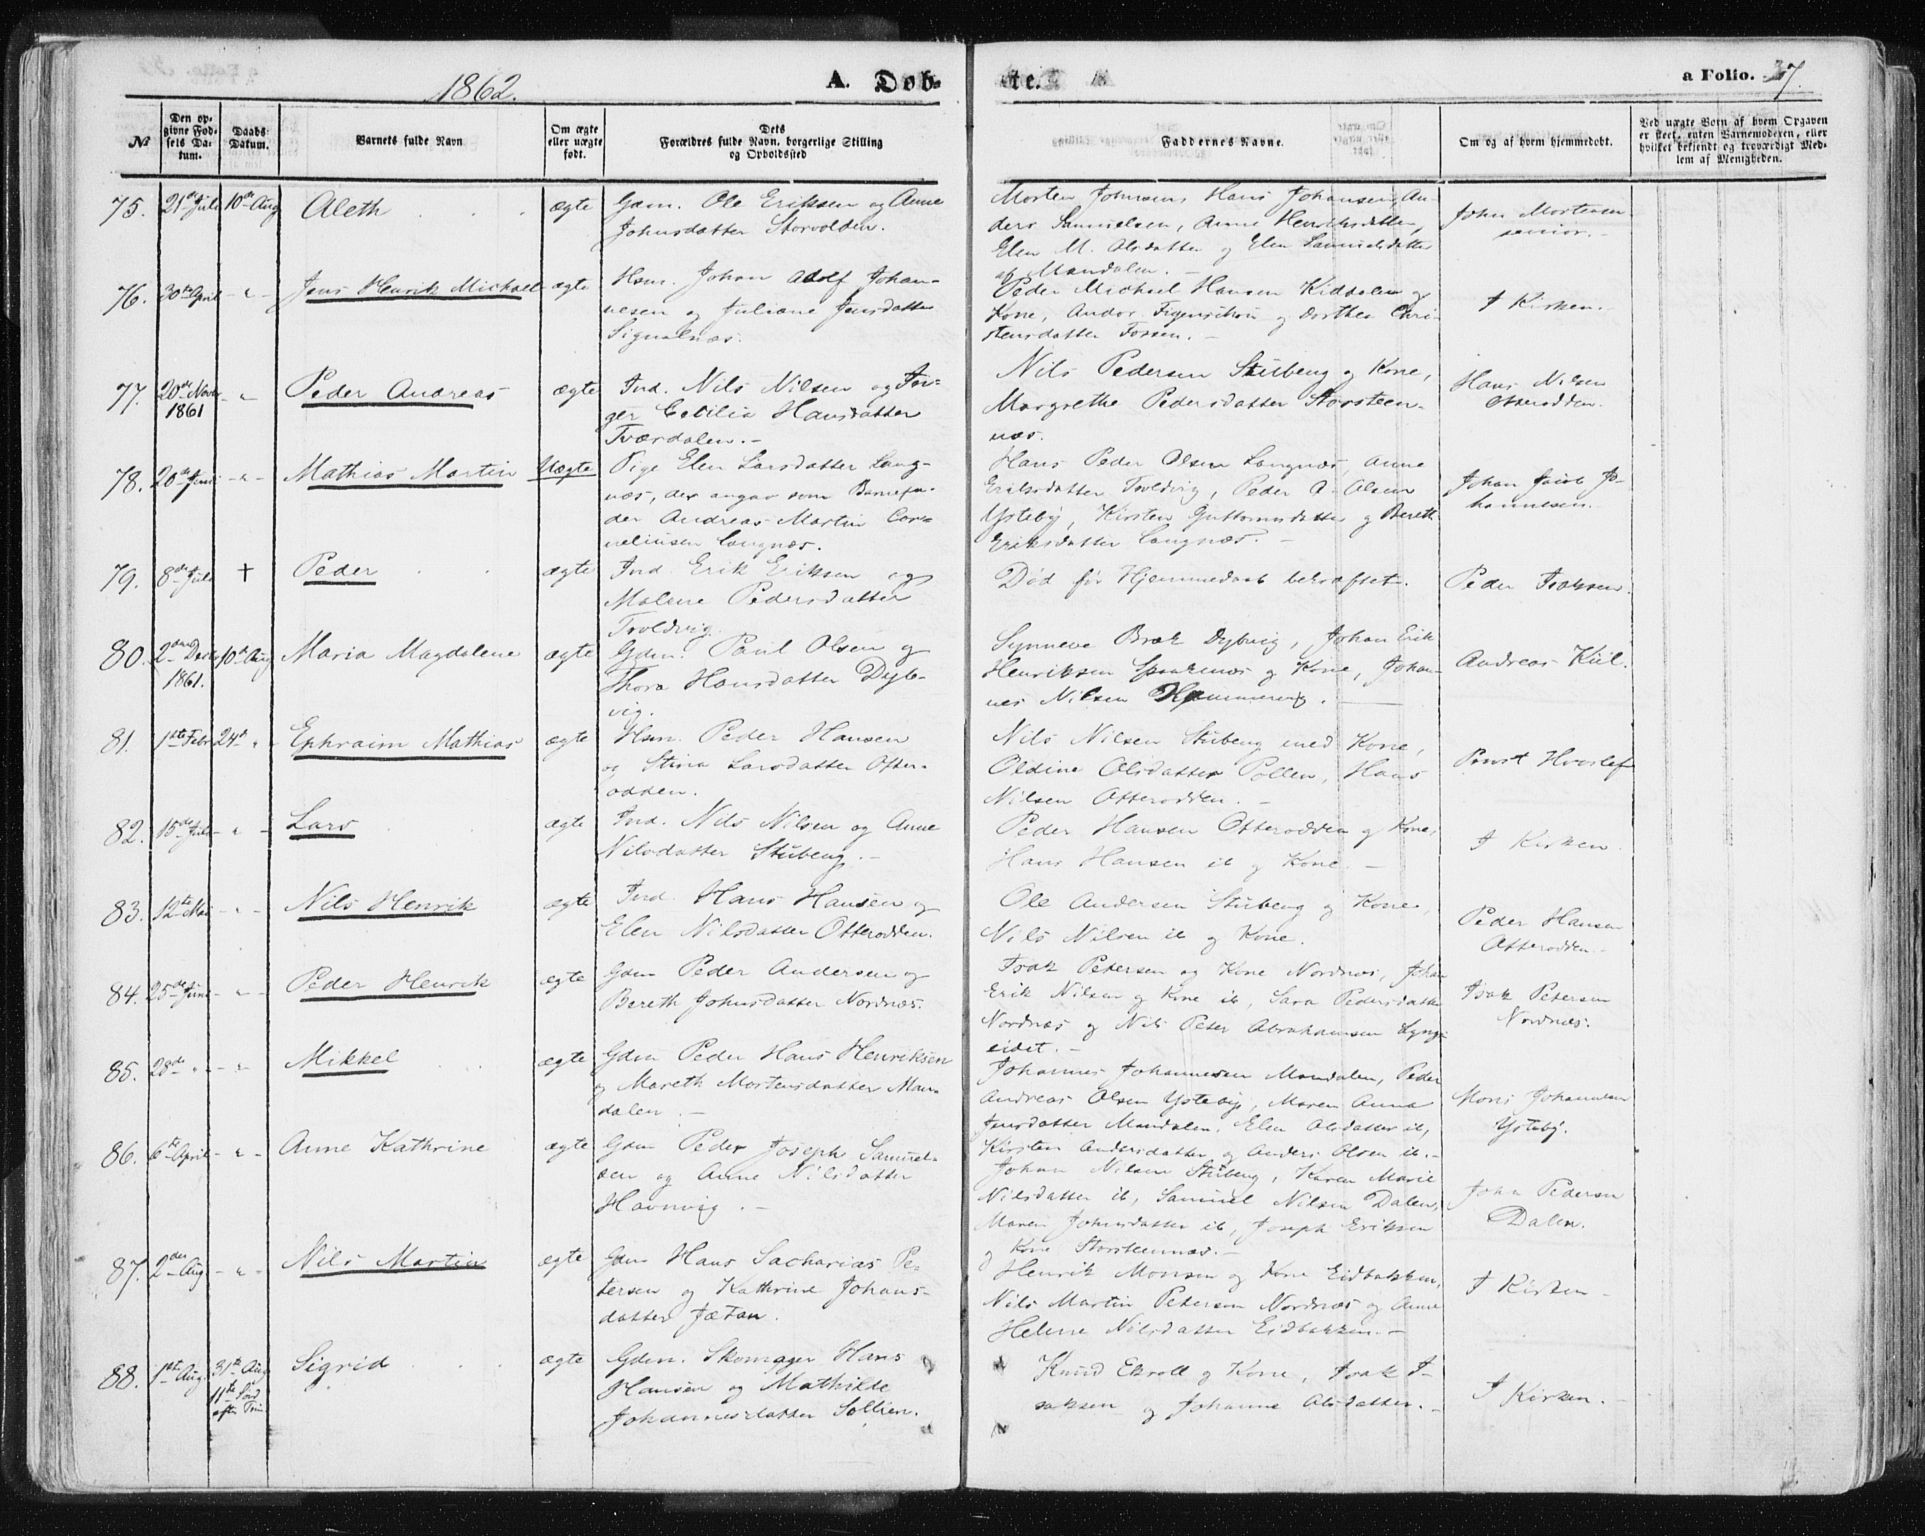 1862.
A. Døb-
te.
a Folio. 37.
№
Den op-
givne Fød-
sels Da-
tum.
Daabs-
Datum.
Barnets fulde Navn
Om ægte
eller uægte
født.
Dets
Forældres fulde Navn, borgerlige Stilling
og Opholdssted
Faddernes Navne.
Om og af hvem hjemmedøbt.
Ved uægte Børn af hvem Opgaven
er skeet, enten Barnemoderen, eller
hvilket bekjendt og troværdigt Med-
lem af Menigheden.
75. 21de Juli 10de Aug Aleth ægte
Gdm. Ole Eriksen og Anne
Johnsdatter Storvolden.
Morten Johnsen, Hans Johansen, An-
ders Samuelsen, Anne Henriksdatter,
Elen M. Olsdatter og Elen Samuelsdatter
af Mandalen. -
John Mortensen
senior. -
76. 30te April - " - Jens Henrik Michael ægte
Hsm. Johan Adolf Johan-
nesen og Juliane Jensdatter
Signalnæs.
Peder Michael Hansen Kiddalen og
Kone, Andor Figenschou og Dorthea Chri-
stensdatter Fossen. -
I Kirken. -
77. 20de Novbr 1861 - " Peder Andreas ægte
Ind. Nils Nilsen og In-
ger Cecilia Hansdatter
Tværdalen. -
Nils Pedersen Stubeng og Kone,
Margrethe Pedersdatter Storsteen-
næs.
Hans Nilsen
Otterodden.
78. 20de Juni - " - Mathias Martin Uægte
Pige Elen Larsdatter Lang-
næs, der angav som Barnefa-
der Andreas Martin Cor-
neliusen Langnæs.
Hans Peder Olsen Langnæs, Anne
Eriksdatter Troldvig, Peder A. Olsen
Ysteby, Kirsten Guttormsdatter og Bereth
Eriksdatter Langnæs. -
Johan Jacob Jo-
hannesen.
79. 8de Juli † Peder ægte
Ind. Erik Eriksen og
Malene Pedersdatter
Troldvig.
Død før Hjemmedaab bekræftet.
Peder Isaksen.
80. 2den Decbr 1861. 10de Aug Maria Magdalene ægte
Gdm. Paul Olsen og
Thora Hansdatter Dyb-
vig.
Synneve Bræk Dybvig, Johan Erik
Henriksen Spaknæs og Kone, Johan-
nes Nilsen Hammereng.
Andreas Kiil.
81. 1ste Febr 24de " Ephraim Mathias ægte
Hsm. Peder Hansen
og Stina Larsdatter Otter-
odden.
Nils Nilsen Stubeng med Kone,
Oldine Olsdatter Pollen, Hans
Nilsen Otterodden. -
Provst Hvoslef
82. 15de Juli - " - Lars ægte
Ind. Nils Nilsen og Anne
Nilsdatter Stubeng. -
Peder Hansen Otterodden og Kone,
Hans Hansen ib og Kone. -
I Kirken.
83. 12te Mai - " - Nils Henrik ægte
Ind. Hans Hansen og
Elen Nilsdatter Otterodden.
Ole Andersen Stubeng og Kone,
Nils Nilsen ib og Kone.
Peder Hansen
Otterodden. -
84. 25de Juni - " - Peder Henrik ægte
Gdm Peder Andersen og
Bereth Johnsdatter Nordnæs.
Isak Petersen og Kone Nordnæs, Johan
Erik Nilsen og Kone ib, Sara Pedersdatter
Nordnæs og Nils Peter Abrahamsen Lyngs-
eidet. -
Isak Petersen
Nordnæs.
85. 28de " - - " - Mikkel ægte
Gdm Peder Hans Henriksen
og Mareth Mortensdatter Man-
dalen. -
Johannes Johannesen Mandalen, Peder
Andreas Olsen Ysteby, Maren Anna
Jensdatter Mandalen, Elen Olsdatter ib,
Kirsten Andersdatter og Anders Olsen ib. -
Mons Johannesen
Ysteby.
86. 6te April - " - Anne Kathrine ægte
Gdm Peder Joseph Samuel-
sen og Anne Nilsdatter
Havnvig. -
Johan Nilsen Stubeng, Karen Marie
Nilsdatter ib, Samuel Nilsen Dalen,
Maren Johnsdatter ib, Joseph Eriksen
og Kone Storsteennæs. -
John Pedersen
Dalen.
87. 2den Aug. - " - Nils Martin ægte
Gdm Hans Sacharias Pe-
tersen og Kathrine Johans-
datter Jætan.
Henrik Monsen og Kone Eidbakken,
Nils Martin Petersen Nordnæs og Anne
Helene Nilsdatter Eidbakken. -
I Kirken -
88. 1ste Aug. 31te Aug 11te Sønd efter Trin Sigrid ægte
Gdm. Skomager Hans
Hansen og Mathilde
Johannesdatter Sollien.
Knud Ekroll og Kone, Isak I-
saksen og Johanne Olsdatter. -
I Kirken. -